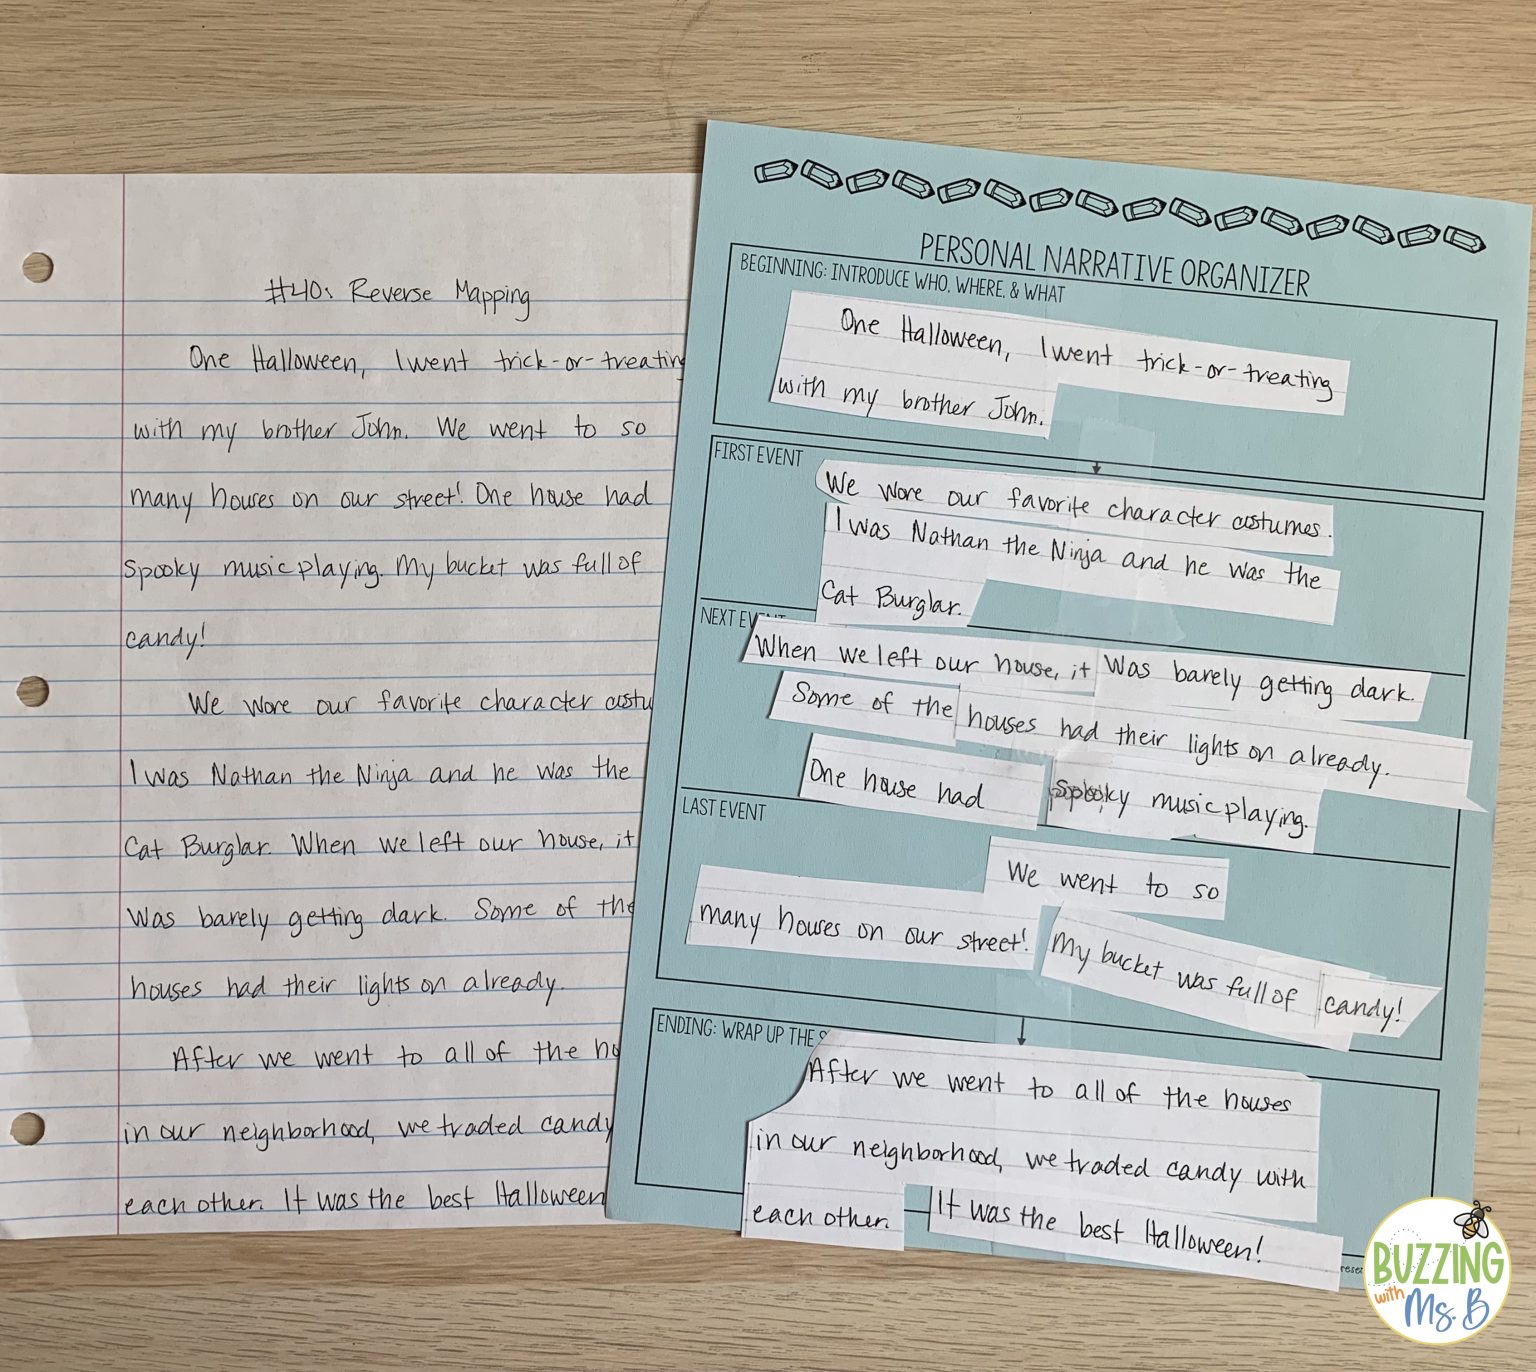 #40: Reverse Mapping
One Halloween, I went trick-or-treating
with my brother John. We went to so
many houses on our street! One house had
spooky music playing. My bucket was full of
candy!
We wore our favorite character costu
I was Nathan the Ninja and he was the
Cat Burglar. When we left our house, it
was barely getting dark. Some of the
houses had their lights on already.
After we went to all of the ho
in our neighborhood, we traded candy
each other. It was the best Halloween
PERSONAL NARRATIVE ORGANIZER
BEGINNING: INTRODUCE WHO, WHERE, & WHAT
One Halloween, I went trick-or-treating
with my brother John.
FIRST EVENT
We wore our favorite character costumes.
I was Nathan the Ninja and he was the
Cat Burglar.
NEXT EVENT
When we left our house, it was barely getting dark.
Some of the houses had their lights on already.
One house had spooky music playing.
LAST EVENT
We went to so
many houses on our street! My bucket was full of candy!
ENDING: WRAP UP THE S
After we went to all of the houses
in our neighborhood, we traded candy with
each other. It was the best Halloween!
BUZZING
with Ms. B